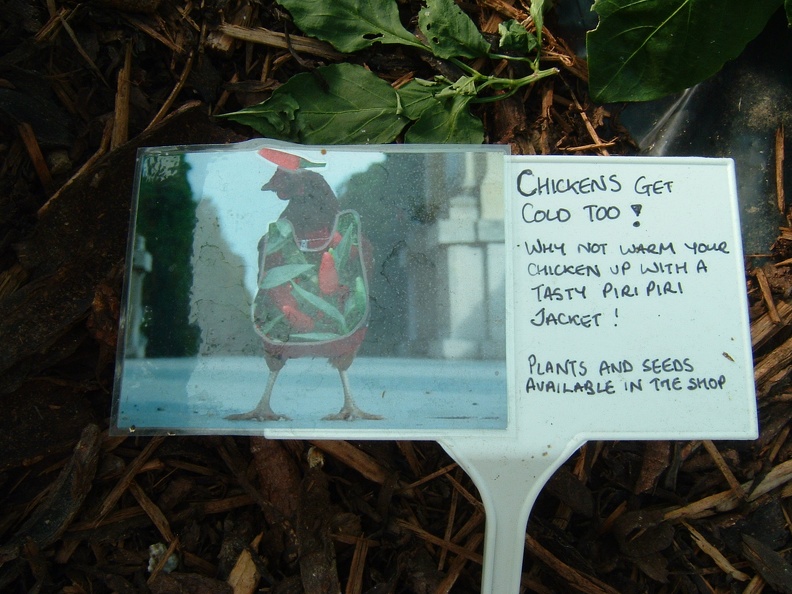 CHICKENS GET
COLD TOO!
WHY NOT WARM YOUR
CHICKEN UP WITH A
TASTY PIRI PIRI
JACKET!
PLANTS AND SEEDS
AVAILABLE IN THE SHOP